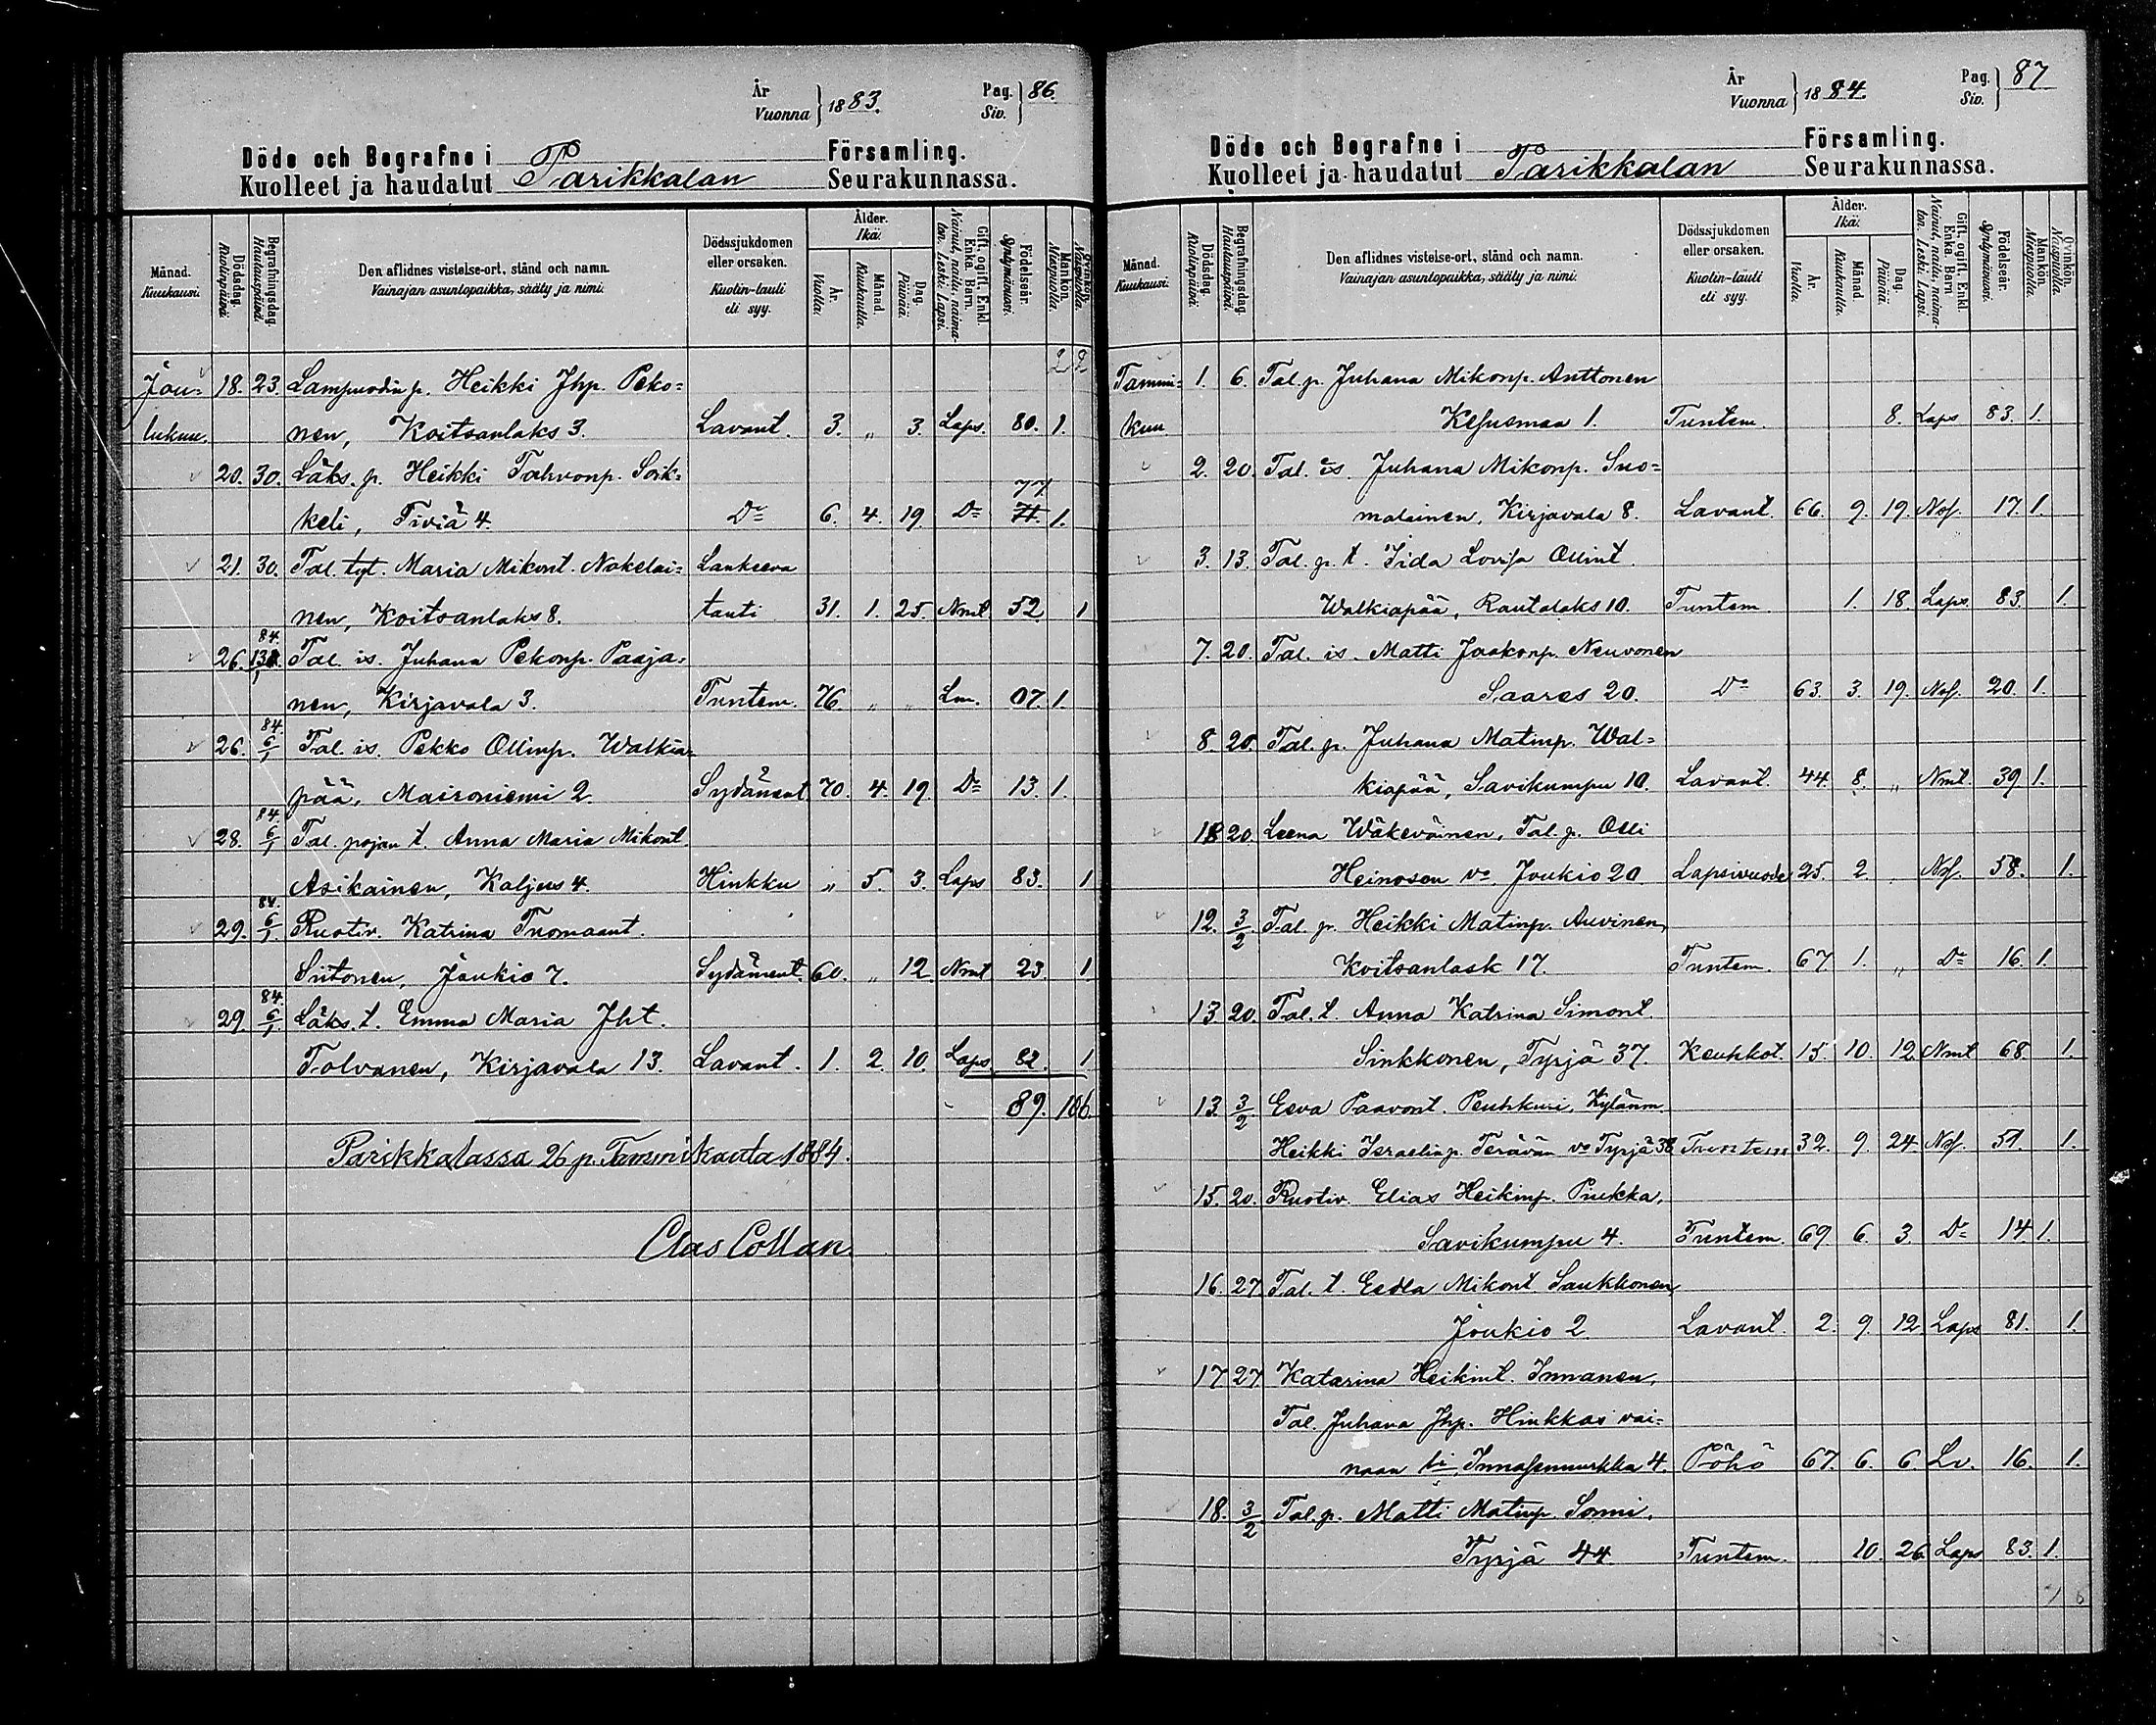 År
Vuonna } 1883. Pag. Siv. } 86.
Döde och Begrafne i Församling.
Kuolleet ja haudatut Parikkalan Seurakunnassa.
Månad. Kuukausi. Dödsdag. Kuolinpäivä. Begrafningsdag. Hautauspäivä. Den aflidnes vistelse-ort, stånd och namn. Vainajan asuntopaikka, sääty ja nimi. Dödssjukdomen eller orsaken. Kuolin-tauti eli syy. Ålder. Ikä. År. Vuotta. Månad. Kuukautta. Dag. Päivää. Gift, ogift, Enkl. Enka. Barn. Nainut, naitu, naimaton. Leski. Lapsi. Födelseår. Syntymävuosi. Mankön. Miespuolta. Qvinkön. Naispuolta.
2 2
Jou= 18. 23. Lampuodin p. Heikki Jhp. Peko=
lukuu. nen, Koitsanlaks 3. Lavant. 3. „ 3. Laps. 80. 1.
20. 30. Läks. p. Heikki Tahvonp. Soik=
77
keli, Tiviä 4. Do 6. 4. 19 Do 71. 1.
21. 30. Tal. tyt. Maria Mikont. Nokelai= Lankeeva
nen, Koitsanlaks 8. tauti 31. 1. 25. Nmt 52 1
84.
26. Tal. is. Juhana Pekonp. Paaja=
nen, Kirjavala 3. Tuntem. 76. „ „ Lm. 07. 1.
84.
26. 6/1 Tal. is. Pekko Ollinp. Walkia=
pää, Maironiemi 2. Sydänent 70. 4. 19. Do 13. 1.
84.
28. 6/1 Tal. pojan t. Anna Maria Mikont.
Asikainen, Kaljus 4. Hinkku „ 5. 3. Laps 83. 1
84.
29. 6/1. Ruotiv. Katrina Tuomaant.
Siitonen, Joukio 7. Sydäment. 60. „ 12 Nmt 23. 1
84.
29. 6/1. Läks. t. Emma Maria Jht.
Tolvanen, Kirjavala 13. Lavant. 1. 2. 10. Laps 82. 1
89. 106
Parikkalassa 26 p. Tammikuuta 1884.
Clas Collan.
År
Vuonna } 1884. Pag. Siv. } 87
Döde och Begrafne i Församling.
Kuolleet ja haudatut Parikkalan Seurakunnassa.
Månad. Kuukausi. Dödsdag. Kuolinpäivä. Begrafningsdag. Hautauspäivä. Den aflidnes vistelse-ort, stånd och namn. Vainajan asuntopaikka, sääty ja nimi. Dödssjukdomen eller orsaken. Kuolin-tauti eli syy. Ålder. Ikä. År. Vuotta. Månad. Kuukautta. Dag. Päivää. Gift, ogift, Enkl. Enka. Barn. Nainut, naitu, naimaton. Leski. Lapsi. Födelseår. Syntymävuosi. Mankön. Miespuolta. Qvinkön. Naispuolta.
Tammi= 1. 6. Tal. p. Juhana Mikonp. Anttonen
kuu. Kesusmaa 1. Tuntem. 8. Laps 83. 1.
2. 20. Tal. is. Juhana Mikonp. Suo=
malainen, Kirjavala 8. Lavant. 66. 9. 19. Nos. 17. 1.
3. 13. Tal. p. t. Iida Lovisa Ollint.
Walkiapää, Rautalaks 10. Tuntem 1. 18. Laps 83. 1.
7. 20. Tal. is. Matti Jaakonp. Neuvonen
Saares 20. Do 63. 3. 19. Nos. 20. 1.
8. 20. Tal. p. Juhana Matinp. Wal=
kiapää, Savikumpu 10. Lavant. 44. 8. „ Nmt. 39 1.
18 20. Leena Wäkeväinen, Tal. p. Olli
Heinosen vo. Joukio 20 Lapsivuode 25. 2. Nos. 58. 1.
12. 3/2 Tal. p. Heikki Matinp. Auvinen,
Koitsanlask 17. Tuntem. 67. 1. „ Do 16. 1.
13 20. Tal. t. Anna Katrina Simont.
Sinkkonen, Tyrjä 37. Keuhkot. 15. 10. 12 Nmt 68. 1.
13. 3/2 Eeva Paavont. Peuhkuri, Kylänm.
Heikki Israelinp. Terävän vo Tyrjä 38 Tuntem 32. 9. 24. Nos. 51. 1.
15. 20. Ruotiv. Elias Heikinp. Piukka,
Savikumpu 4. Tuntem. 69. 6. 3. Do 14 1.
16. 27 Tal. t. Eedla Mikont Saukkonen,
Joukio 2 Lavant. 2. 9. 12. Laps 81. 1.
17 27 Katarina Heikint. Innanen,
Tal. Juhana Jhp. Hinkkas vai=
naan li Innasennurkka 4. Pöhö 67. 6. 6. Lv. 16. 1.
18. 3/2. Tal. p. Matti Matinp. Sormi,
Tyrjä 44 Tuntem. 10. 26. Laps 83. 1.